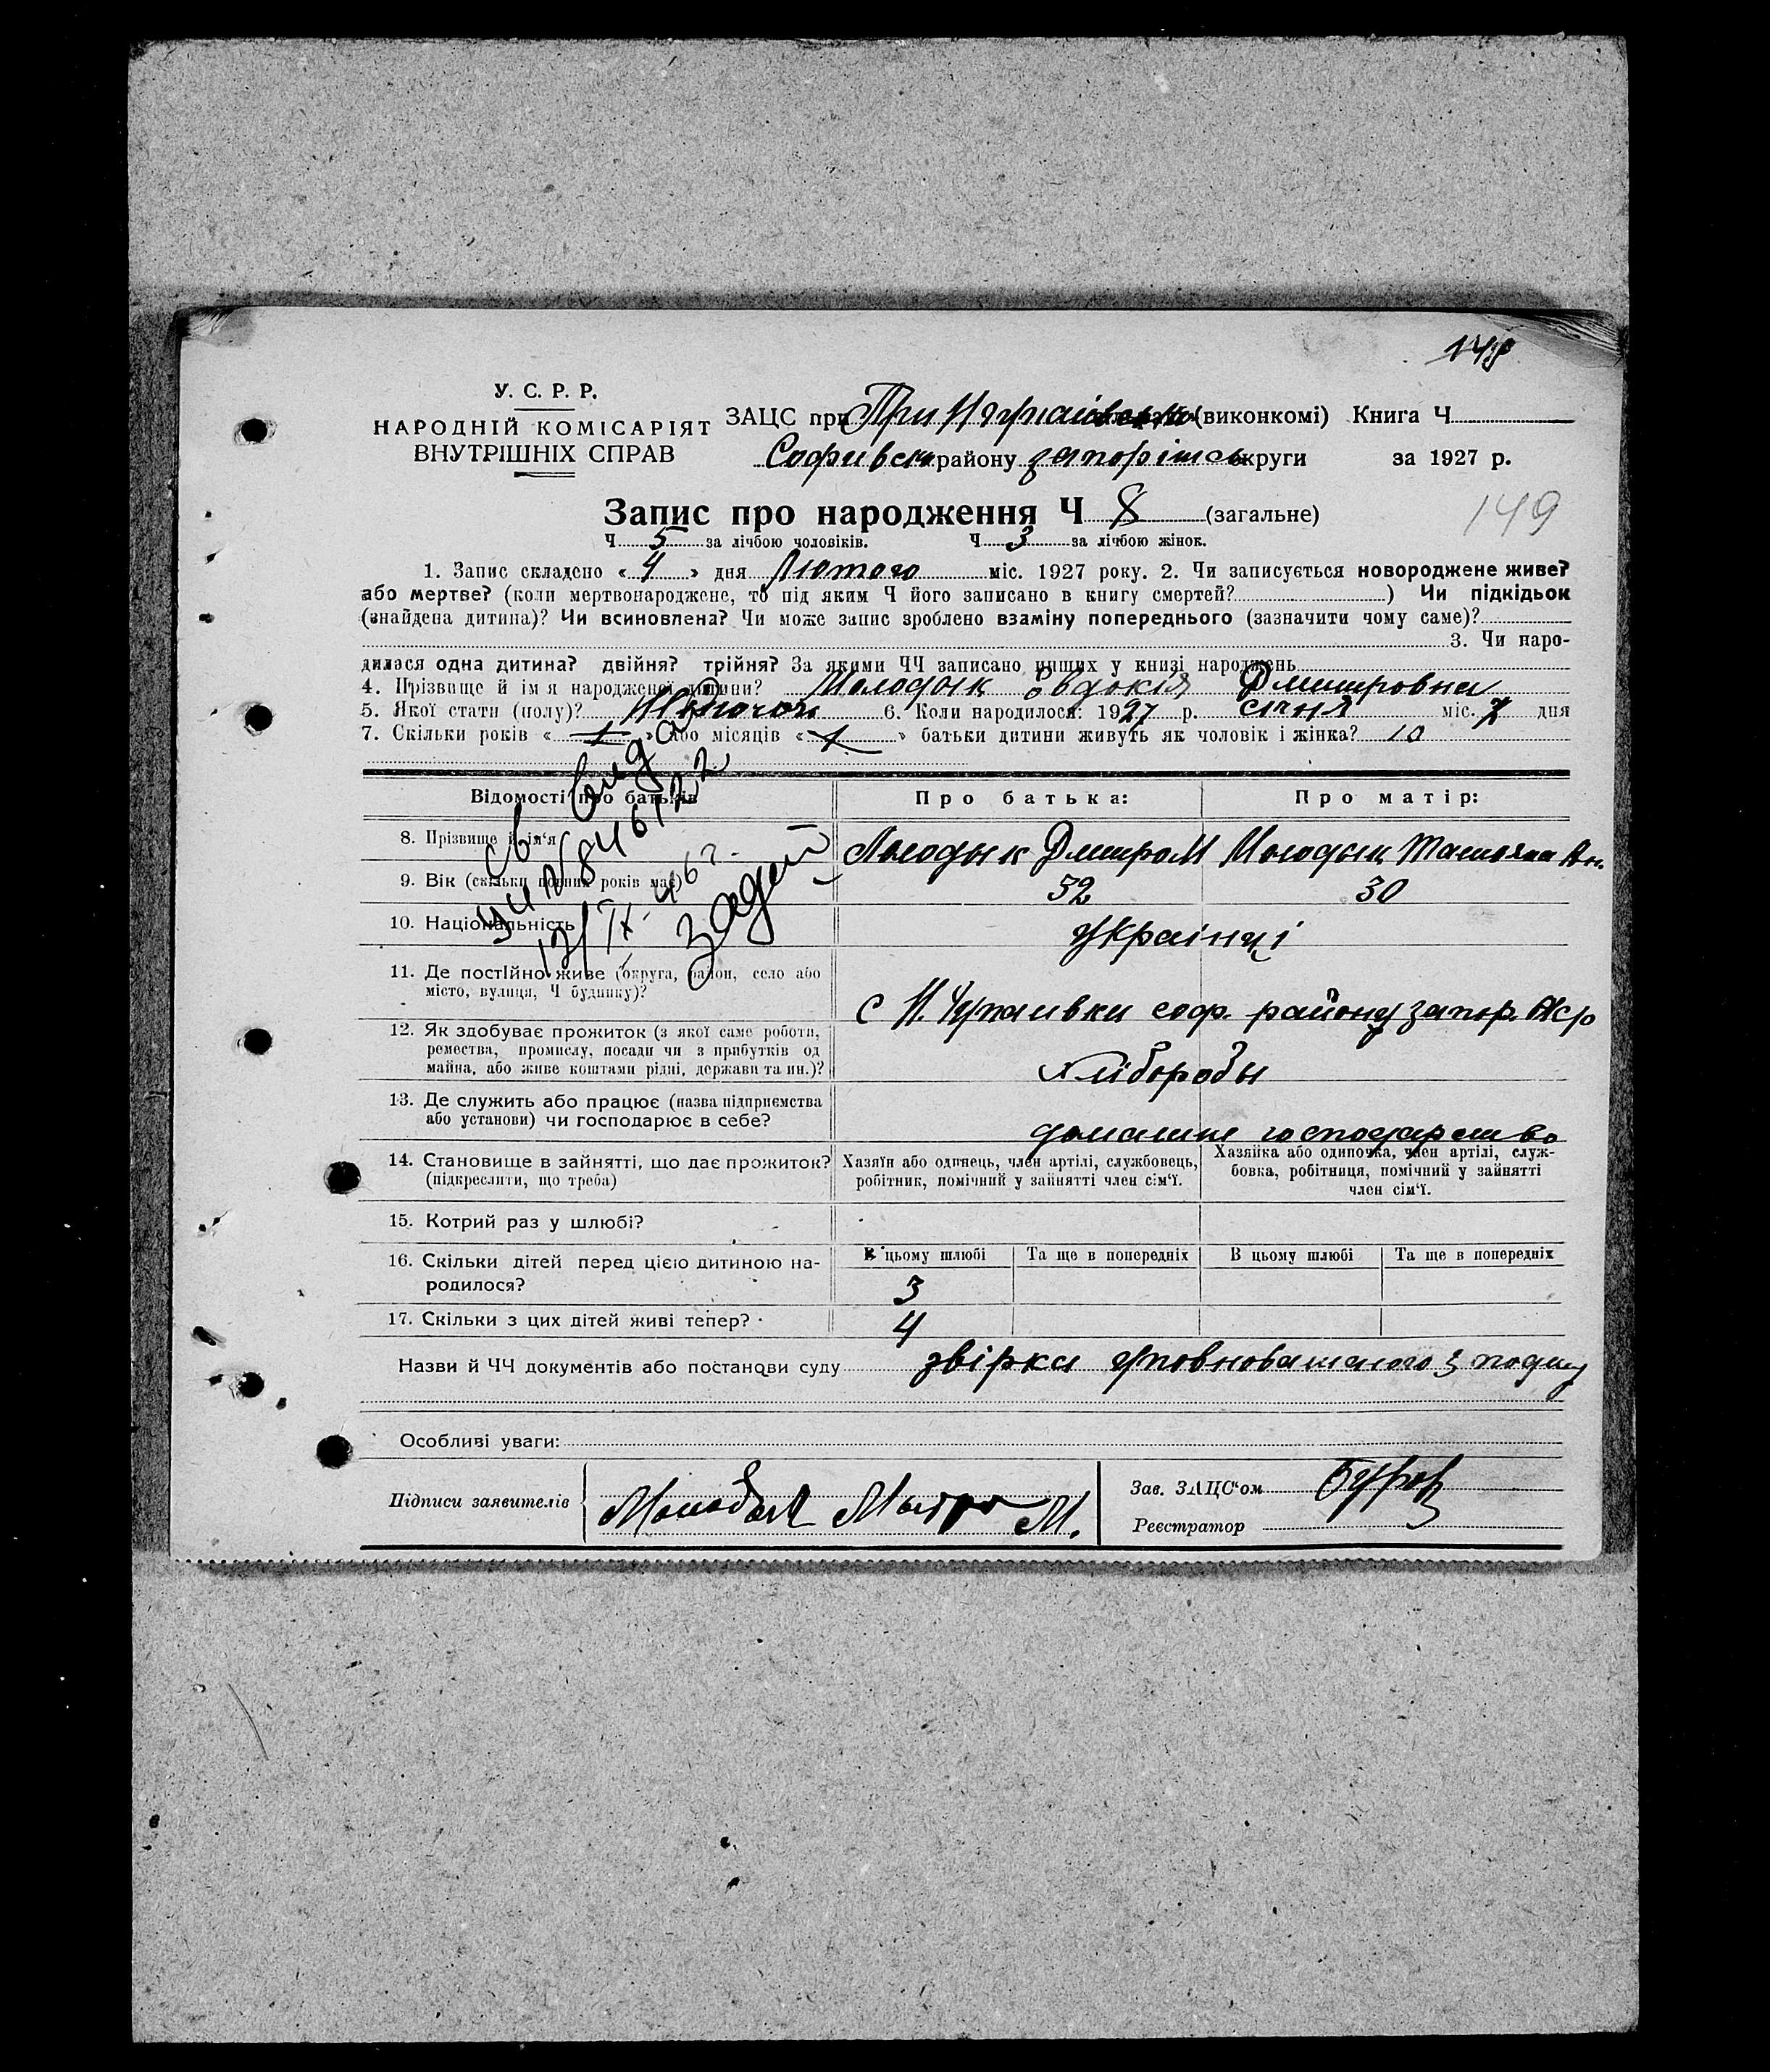 149
У. С. Р. Р.
НАРОДНІЙ КОМІСАРІЯТ
ВНУТРІШНІХ СПРАВ
ЗАЦС при При (виконкомі) Книга Ч
Софивськ району запорішськ округи за 1927 р.
Запис про народження Ч 8 (загальне)
149
Ч 5 за лічбою чоловіків. Ч 3 за лічбою жінок.
1. Запис складено « 4 » дня Лютого міс. 1927 року. 2. Чи записується новороджене живе?
або мертве? (коли мертвонароджене, то під яким Ч його записано в книгу смертей? ) Чи підкідьок
(знайдена дитина)? Чи всиновлена? Чи може запис зроблено взаміну попереднього (зазначити чому саме)?
3. Чи наро-
дилася одна дитина? двійня? трійня? За якими ЧЧ записано инших у книзі народжень
4. Прізвище й ім я народженої дитини? Молодык Овдокія Дмитровна
5. Якої стати (полу)? 6. Коли народилося: 1927 р. січня міс. 7 дня
7. Скільки років « » або місяців « » батьки дитини живуть як чоловік і жінка? 10
Відомості про батьків Про батька: Про матір:
8. Прізвище й ім'я Молодык Дмитро М Молодык Татьяна Ан.
9. Вік (скільки повних років має) 32 30
10. Національність Украінці
11. Де постійно живе (округа, район, село або
місто, вулиця, Ч будинку)?
с Н. соф. району запор. Окр
12. Як здобуває прожиток (з якої саме роботи,
ремества, промислу, посади чи з прибутків од
майна, або живе коштами рідні, держави та ин.)?
хлібороды
13. Де служить або працює (назва підприємства
або установи) чи господарює в себе?
домашнє господарство
14. Становище в зайнятті, що дає прожиток?
(підкреслити, що треба)
Хазяїн або одинець, член артілі, службовець,
робітник, помічний у зайнятті член сім'ї.
Хазяйка або одиночка, член артілі, служ-
бовка, робітниця, помічний у зайнятті
член сім'ї.
15. Котрий раз у шлюбі?
16. Скільки дітей перед цією дитиною на-
родилося?
В цьому шлюбі Та ще в попередніх В цьому шлюбі Та ще в попередніх
3
17. Скільки з цих дітей живі тепер? 4
Назви й ЧЧ документів або постанови суду звірка уповноваженого з подищу
Особливі уваги:
Підписи заявителів М.
Зав. ЗАЦС'ом
Реєстратор
св выда
12/IX-46г.